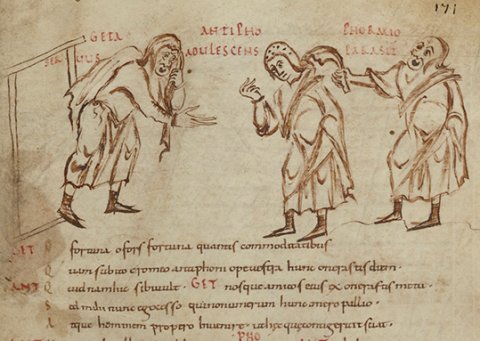 171
GETA ANTIPHO PHORMIO
SERVUS ADULESCENS PARASIT
GET O fortuna ofors fortuna quantis commoditatibus
Q uam subito eromeo antiphoni opeuestra hunc onerastis diem.
ANT Q uid namhic sibi uult. GET nosque amicos eius exonerastis metu.
S ed mihi nunc egocesso quinonumerum hunc onero pallio.
A tque hominem propero Inuenire. uthec quecontigerint sciat.
PHO